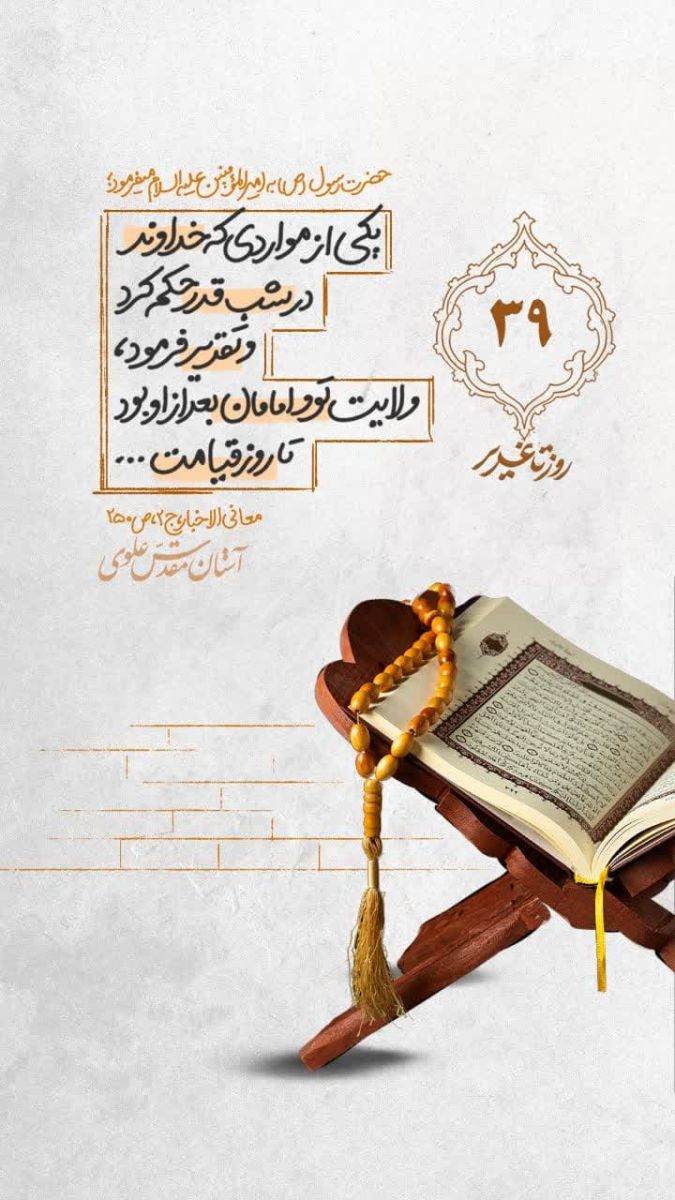 حضرت رسول (ص) به امیرالمؤمنین علیه السلام میفرمود:
یکی از مواردی که خداوند
در شب قدر حکم کرد
و تقدیر فرمود،
ولایت تو و امامان بعد از او بود
تا روز قیامت ...
معانی الاخبار، ج۲، ص۲۵۰
آستان مقدس علوی
۳۹
روز تا غدیر